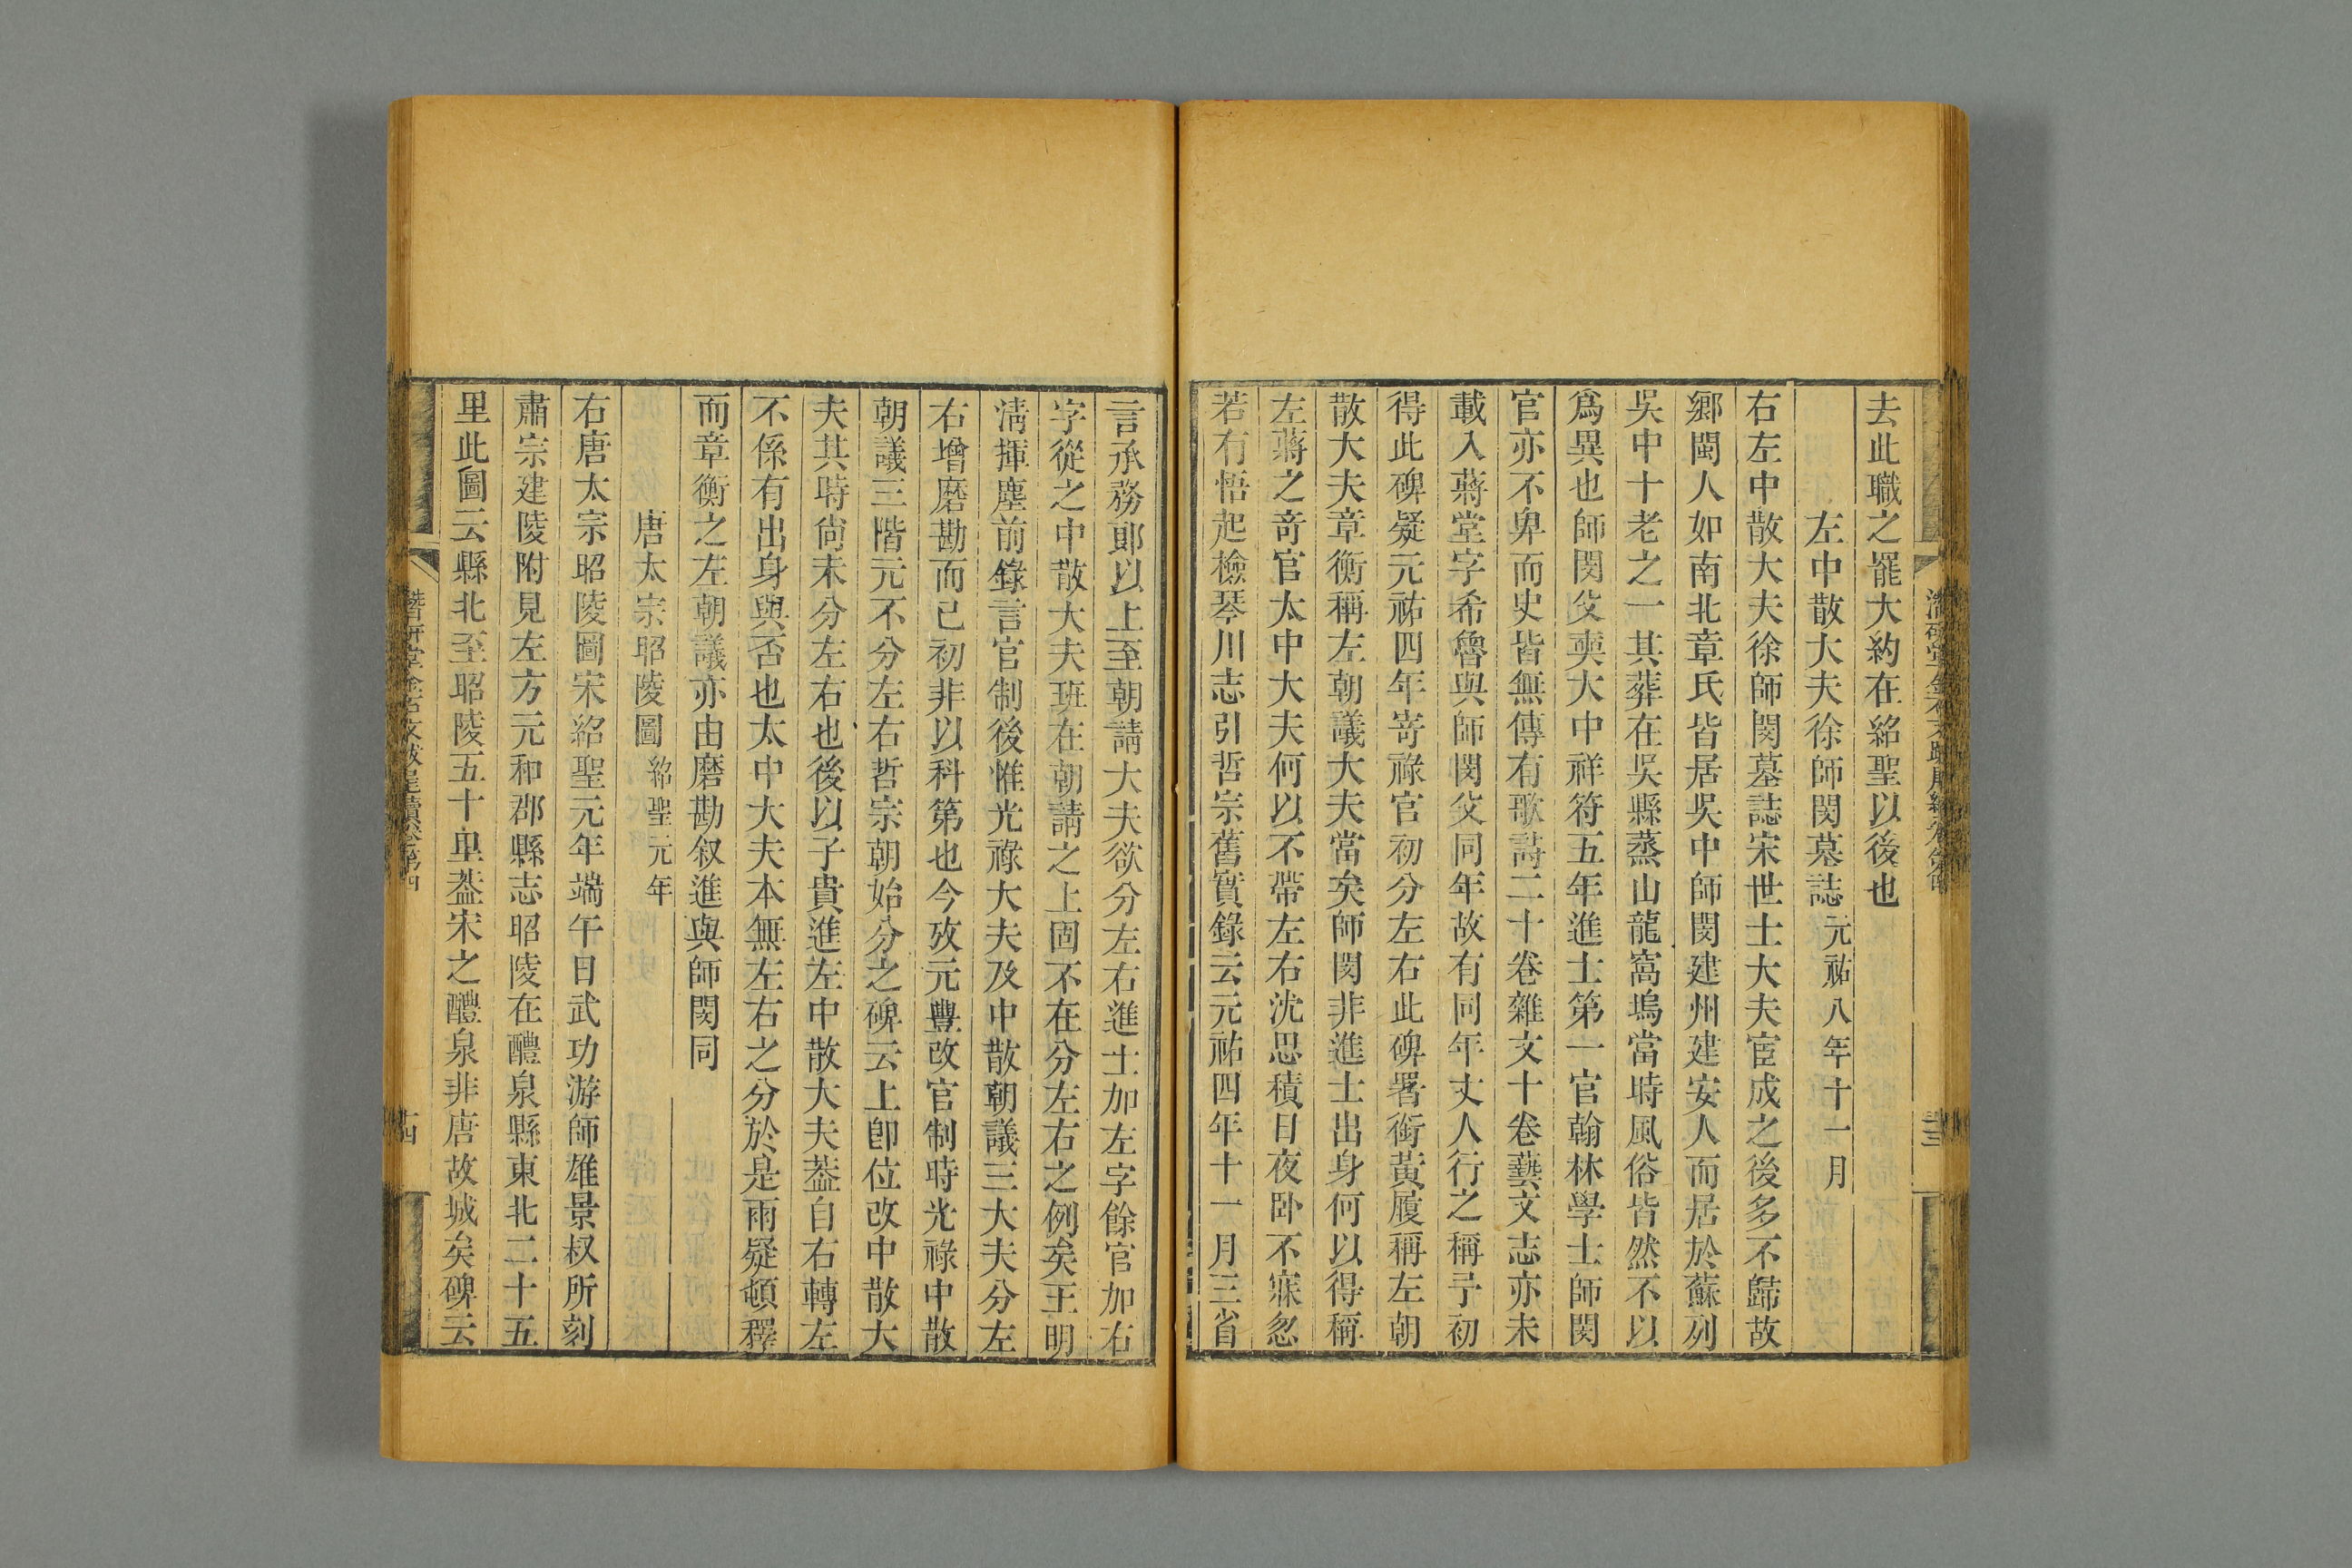 去此職之罷大約在紹聖以後也
左中散大夫徐師閔墓誌元祐八年十一月
右左中散大夫徐師閔墓誌宋世士大夫宦成之後多不歸故
鄉閩人如南北章氏皆居吳中師閔建州建安人而居於蘇列
吳中十老之一其葬在吳縣蒸山龍窩塢當時風俗皆然不以
爲異也師閔父奭大中祥符五年進士第一官翰林學士師閔
官亦不卑而史皆無傳有歌詩二十卷雜文十卷藝文志亦未
載入蔣堂字希魯與師閔父同年故有同年丈人行之稱予初
得此碑疑元祐四年寄祿官初分左右此碑署銜黃履稱左朝
散大夫章衡稱左朝議大夫當矣師閔非進士出身何以得稱
左蔣之奇官太中大夫何以不帶左右沈思積日夜卧不寐忽
若有悟起檢琴川志引哲宗舊實錄云元祐四年十一月三省
言承務郞以上至朝請大夫欲分左右進士加左字餘官加右
字從之中散大夫班在朝請之上固不在分左右之例矣王明
淸揮塵前錄言官制後惟光祿大夫及中散朝議三大夫分左
右增磨勘而已初非以科第也今攷元豐改官制時光祿中散
朝議三階元不分左右哲宗朝始分之碑云上卽位改中散大
夫其時尙未分左右也後以子貴進左中散大夫葢自右轉左
不係有出身與否也太中大夫本無左右之分於是兩疑頓釋
而章衡之左朝議亦由磨勘叙進與師閔同
唐太宗昭陵圖紹聖元年
右唐太宗昭陵圖宋紹聖元年端午日武功游師雄景叔所刻
肅宗建陵附見左方元和郡縣志昭陵在醴泉縣東北二十五
里此圖云縣北至昭陵五十里葢宋之醴泉非唐故城矣碑云
潛硏堂金石文跋尾續卷第四
十四